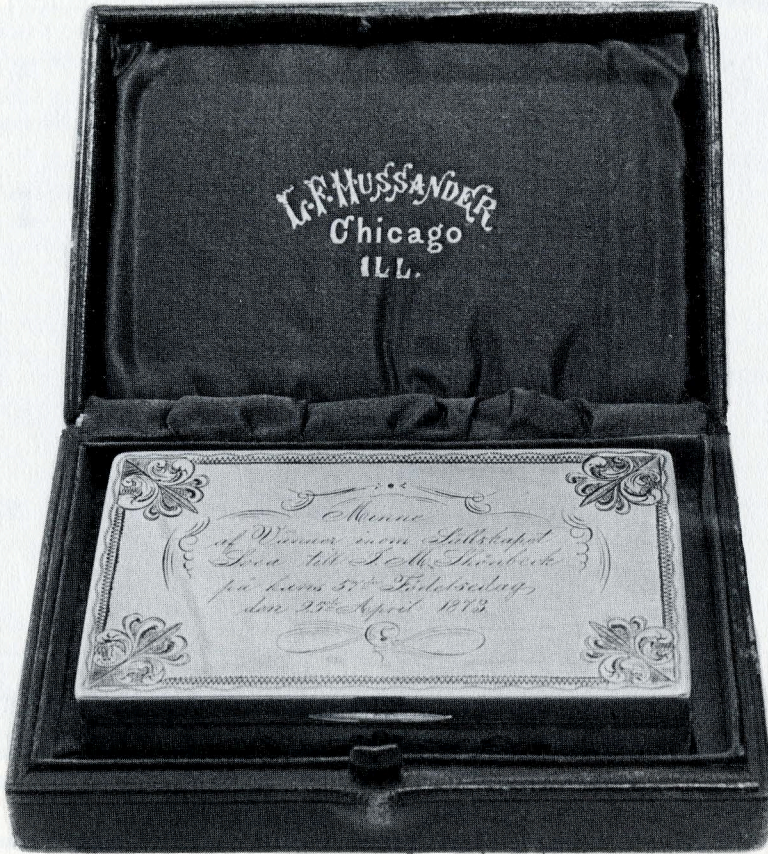 L.F. HUSSANDER
Chicago
ILL.
Minne
af Vänner inom Sällskapet
Svea till I. M. Skönbeck
på hans 57de Födelsedag,
den 25te April 1873